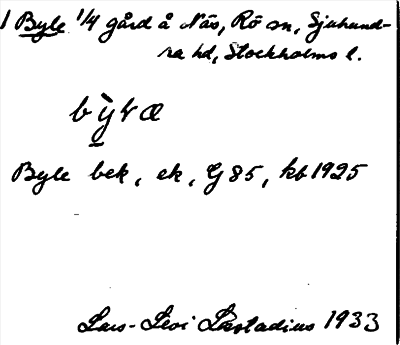 1 Byle 1/4 gård å Näs, Rö sn, Sjuhund-
ra hd, Stockholms l.
bỳ̱ɽæ
Byle bek, ek, G 85, kb 1925
Lars-Levi Læstadius 1933